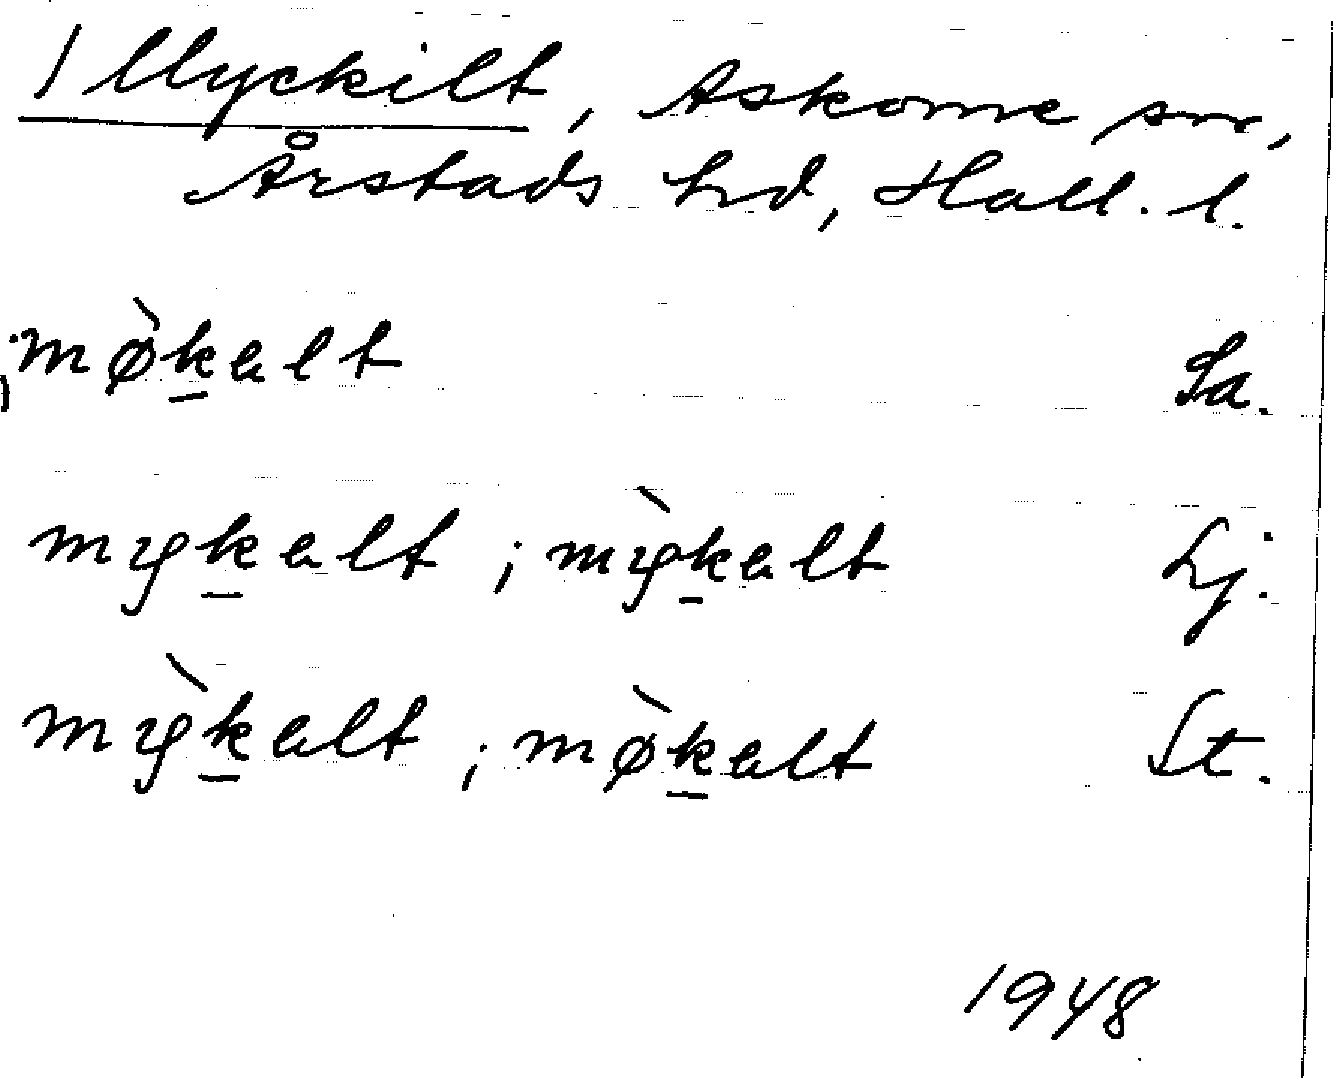 Myckilt, Askome sn,
Årstads hd, Hall. l.
mø̀k̲alt Sa.
myk̲alt ; mỳk̲alt Lj.
mỳk̲alt ; mø̀k̲alt St.
1948